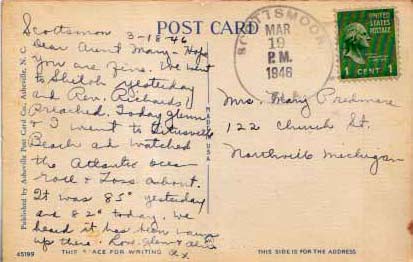 POST CARD
Scottsmoor 3-18-46
Dear Aunt Mary - Hope
you are fine. We went
to Shiloh yesterday
and Rev. Richards
Preached. Today Glenn
& I went to Titusville
Beach and watched
the Atlantic ocea
roll & Toss about.
It was 85° yesterday
and 82° today. We
heard it has been warm
up there. Love Glenn &
SCOTTSMOOR
MAR
19
P.M.
1946
FLA.
UNITED STATES
POSTAGE
1 CENT 1
Mrs. Mary Predmore
122 Church St.
Northville Michigan
Published by Asheville Post Card Co., Asheville, N. C.
MADE IN U.S.A.
45199
THIS SPACE FOR WRITING
THIS SIDE IS FOR THE ADDRESS